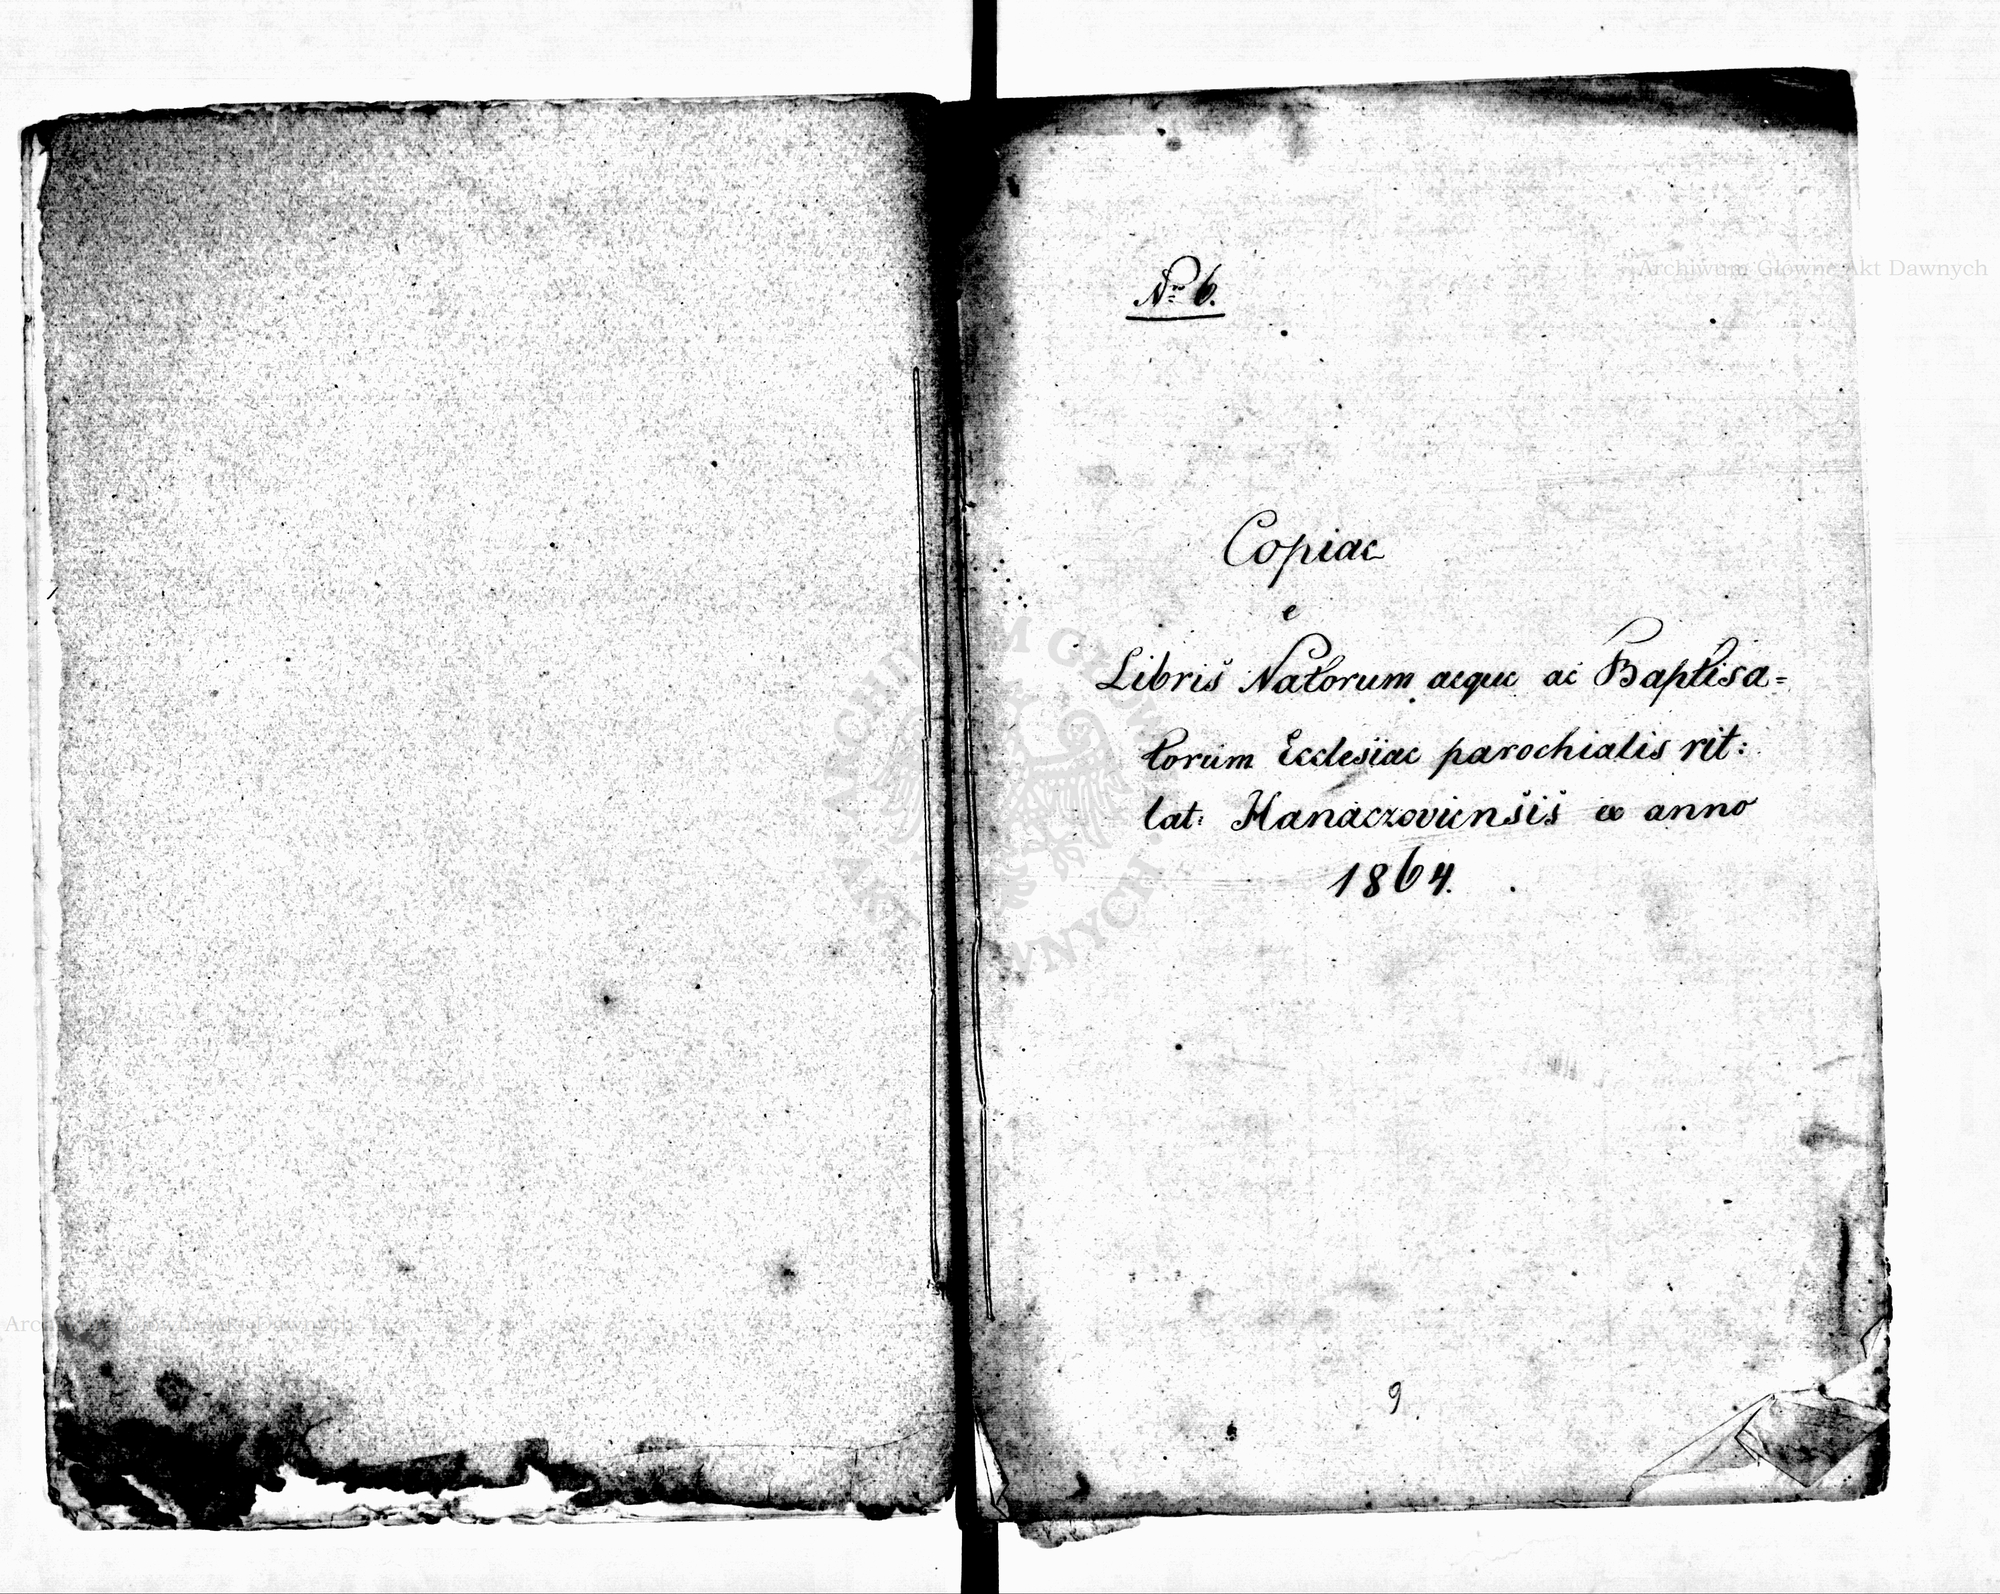 Archiwum Główne Akt Dawnych
Nro 6.
Copiae
e
Libris Natorum aeque ac Baptisa=
torum Ecclesiae parochialis rit:
lat: Hanaczoviensis ex anno
1864.
ARCHIWUM GŁÓWNE AKT DAWNYCH
Archiwum Główne Akt Dawnych
9